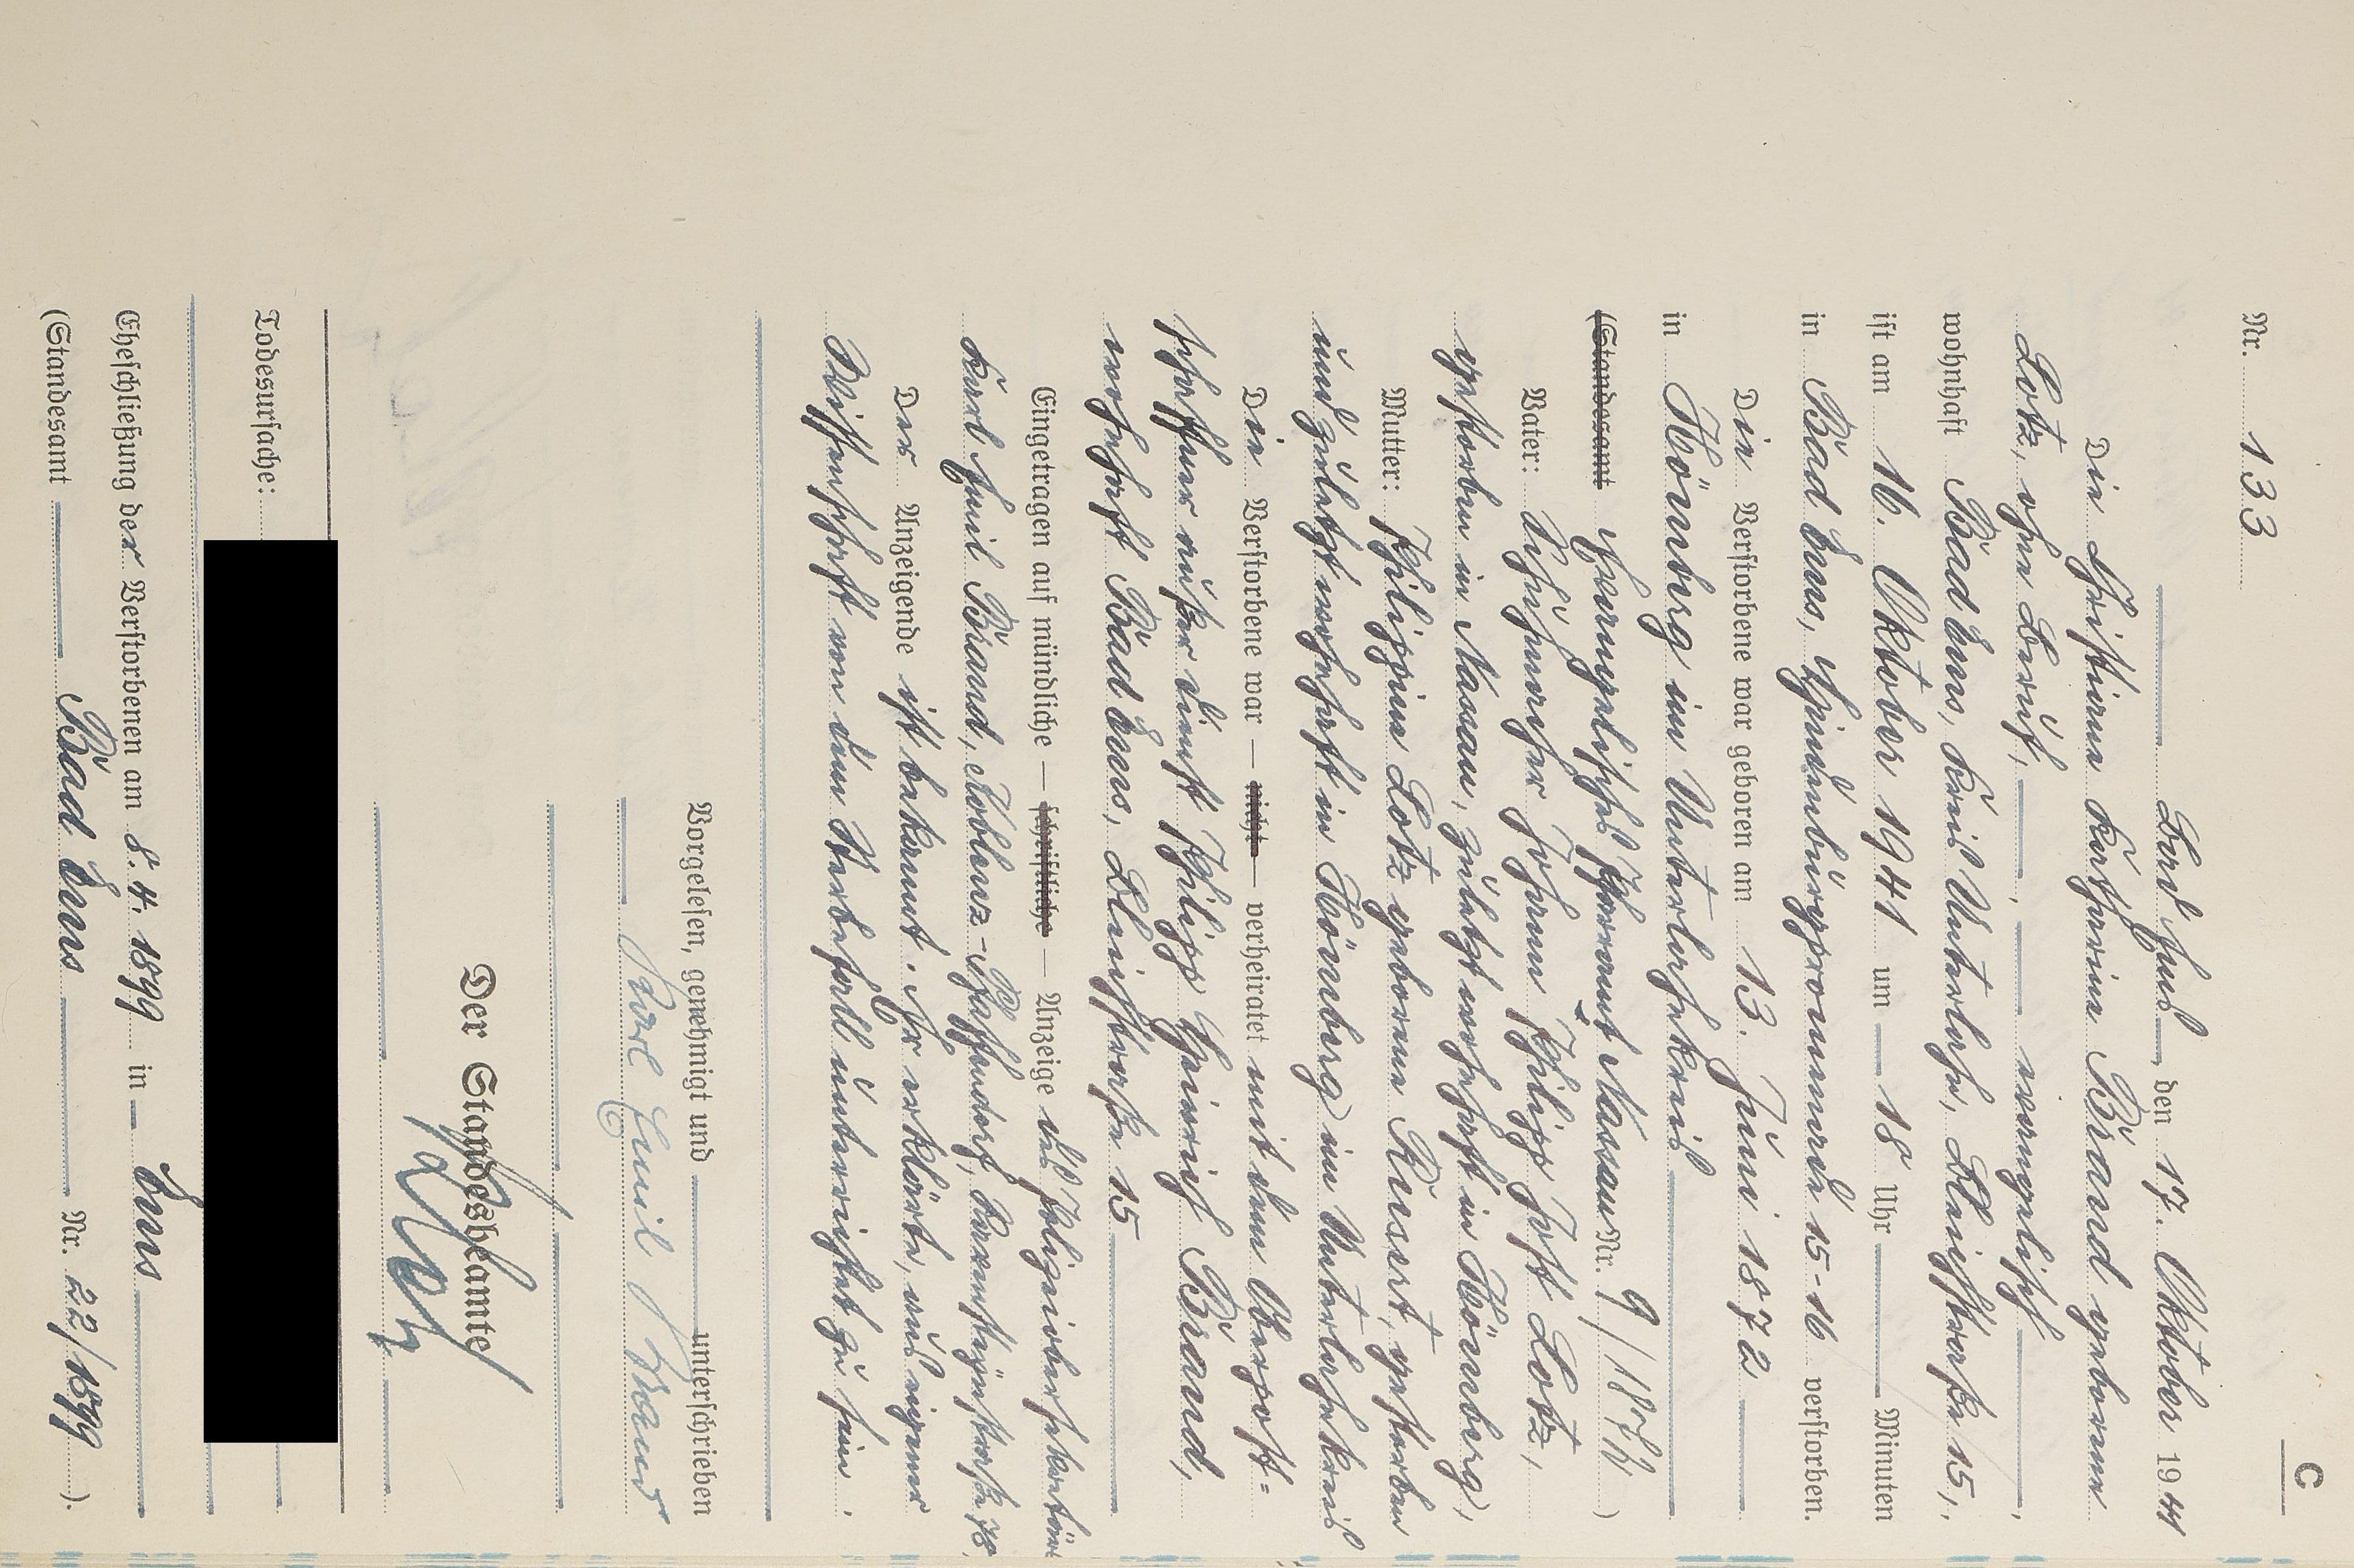 C
Nr. 133
Bad Ems, den 17. Oktober 1941
Die Christiane Katharine Brand geborene
Lotz, ohne Beruf, evangelisch
wohnhaft Bad Ems, Kreis Unterlahn, Bleichstraße 15,
ist am 16. Oktober 1941 um 18 Uhr Minuten
in Bad Ems, Hindenburgpromenade 15-16 verstorben.
Die Verstorbene war geboren am 13. Juni 1872
in Hömberg im Unterlahnkreis
(Standesamt Evangelisches Pfarramt Nassau Nr. 9/1872)
Vater: Johann Philipp Jost Lotz,
gestorben in Nassau, zuletzt wohnhaft in Hömberg,
Mutter: Philippine Lotz geborene gestorben
und zuletzt wohnhaft in Hömberg im Unterlahnkreis
Die Verstorbene war — nicht — verheiratet mit dem Oberpost-
schaffner außer Dienst Philipp Heinrich Brand,
wohnhaft Bad Ems, Bleichstraße 15
Eingetragen auf mündliche — schriftliche — Anzeige des
Karl Emil Brand, Koblenz-Pfaffendorf,
Der Anzeigende ist bekannt. Er erklärte, aus eigener
Wissenschaft von dem Sterbefall unterrichtet zu sein.
Vorgelesen, genehmigt und unterschrieben
Karl Emil Brand
Der Standesbeamte
Todesursache:
Eheschließung der Verstorbenen am 8. 4. 1899 in Ems
(Standesamt Bad Ems Nr. 22/1899).